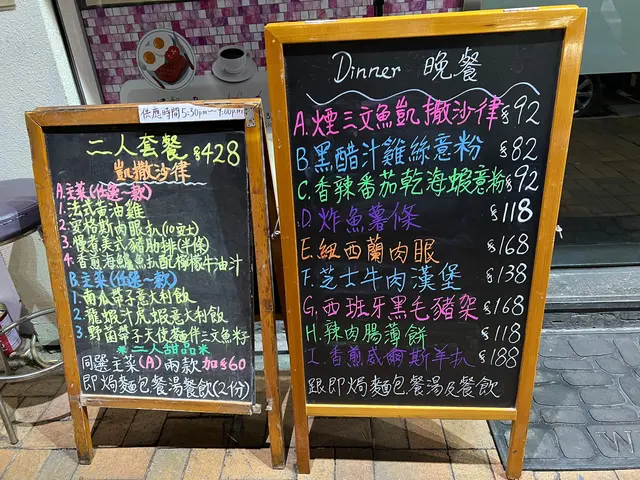 供應時間5:30pm~9:00pm
二人套餐 $428
凱撒沙律
A.主菜(任選一款)
1.法式黃油雞
2.安格斯肉眼扒(10安士)
3.慢煮美式豬肋排(半條)
4.香煎海鱸魚扒配檸檬牛油汁
B.主菜(任選一款)
1.南瓜帶子意大利飯
2.龍蝦汁虎蝦意大利飯
3.野菌帶子天使麵伴三文魚籽
*二人甜品*
同選主菜(A)兩款加$60
即焗麵包餐湯餐飲(2份)
Dinner 晚餐
A.煙三文魚凱撒沙律 $92
B.黑醋汁雞絲意粉 $82
C.香辣番茄乾海蝦意粉 $92
D.炸魚薯條 $118
E.紐西蘭肉眼 $168
F.芝士牛肉漢堡 $138
G.西班牙黑毛豬架 $168
H.辣肉腸薄餅 $118
I.香煎威爾斯羊扒 $188
跟即焗麵包餐湯及餐飲